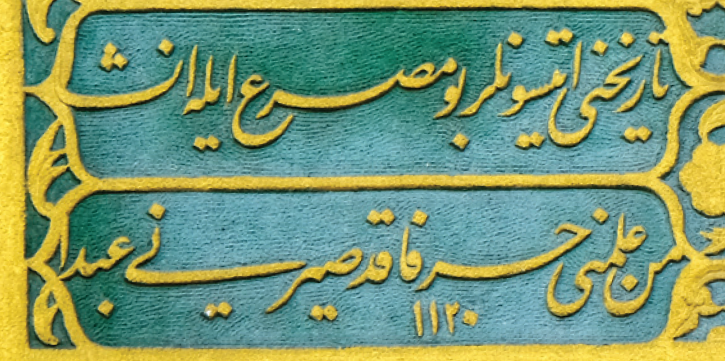 تاریخنی ایتسونلر بو مصرع ایله انشا
من علمنی حرفا قد صیرنی عبدا
١١٢٠